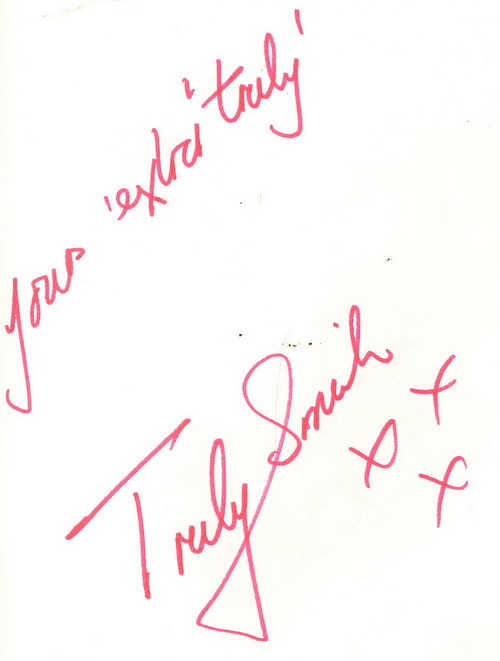 Yours 'extra' 'truly'
Truly Smith
x x x